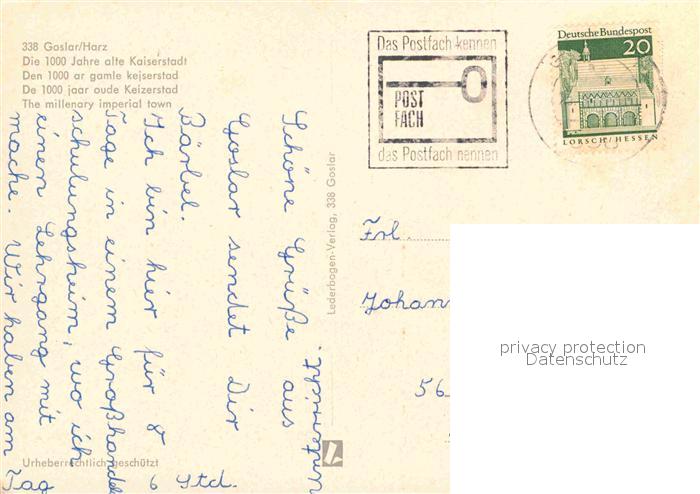 338 Goslar/Harz
Die 1000 Jahre alte Kaiserstadt
Den 1000 ar gamle kejserstad
De 1000 jaar oude Keizerstad
The millenary imperial town
Das Postfach kennen
POST
FACH
das Postfach nennen
Deutsche Bundespost
20
LORSCH/HESSEN
Schöne Grüße aus
Goslar sendet Dir
Bärbel.
Ich bin hier für 8
Tage in einem Großhandel
schulungsheim, wo ich
einen Lehrgang mit
mache. Wir haben am Tag
6 Std.
Unterricht.
Lederbogen-Verlag, 338 Goslar
Frl.
Johan
56
privacy protection
Datenschutz
Urheberrechtlich geschützt